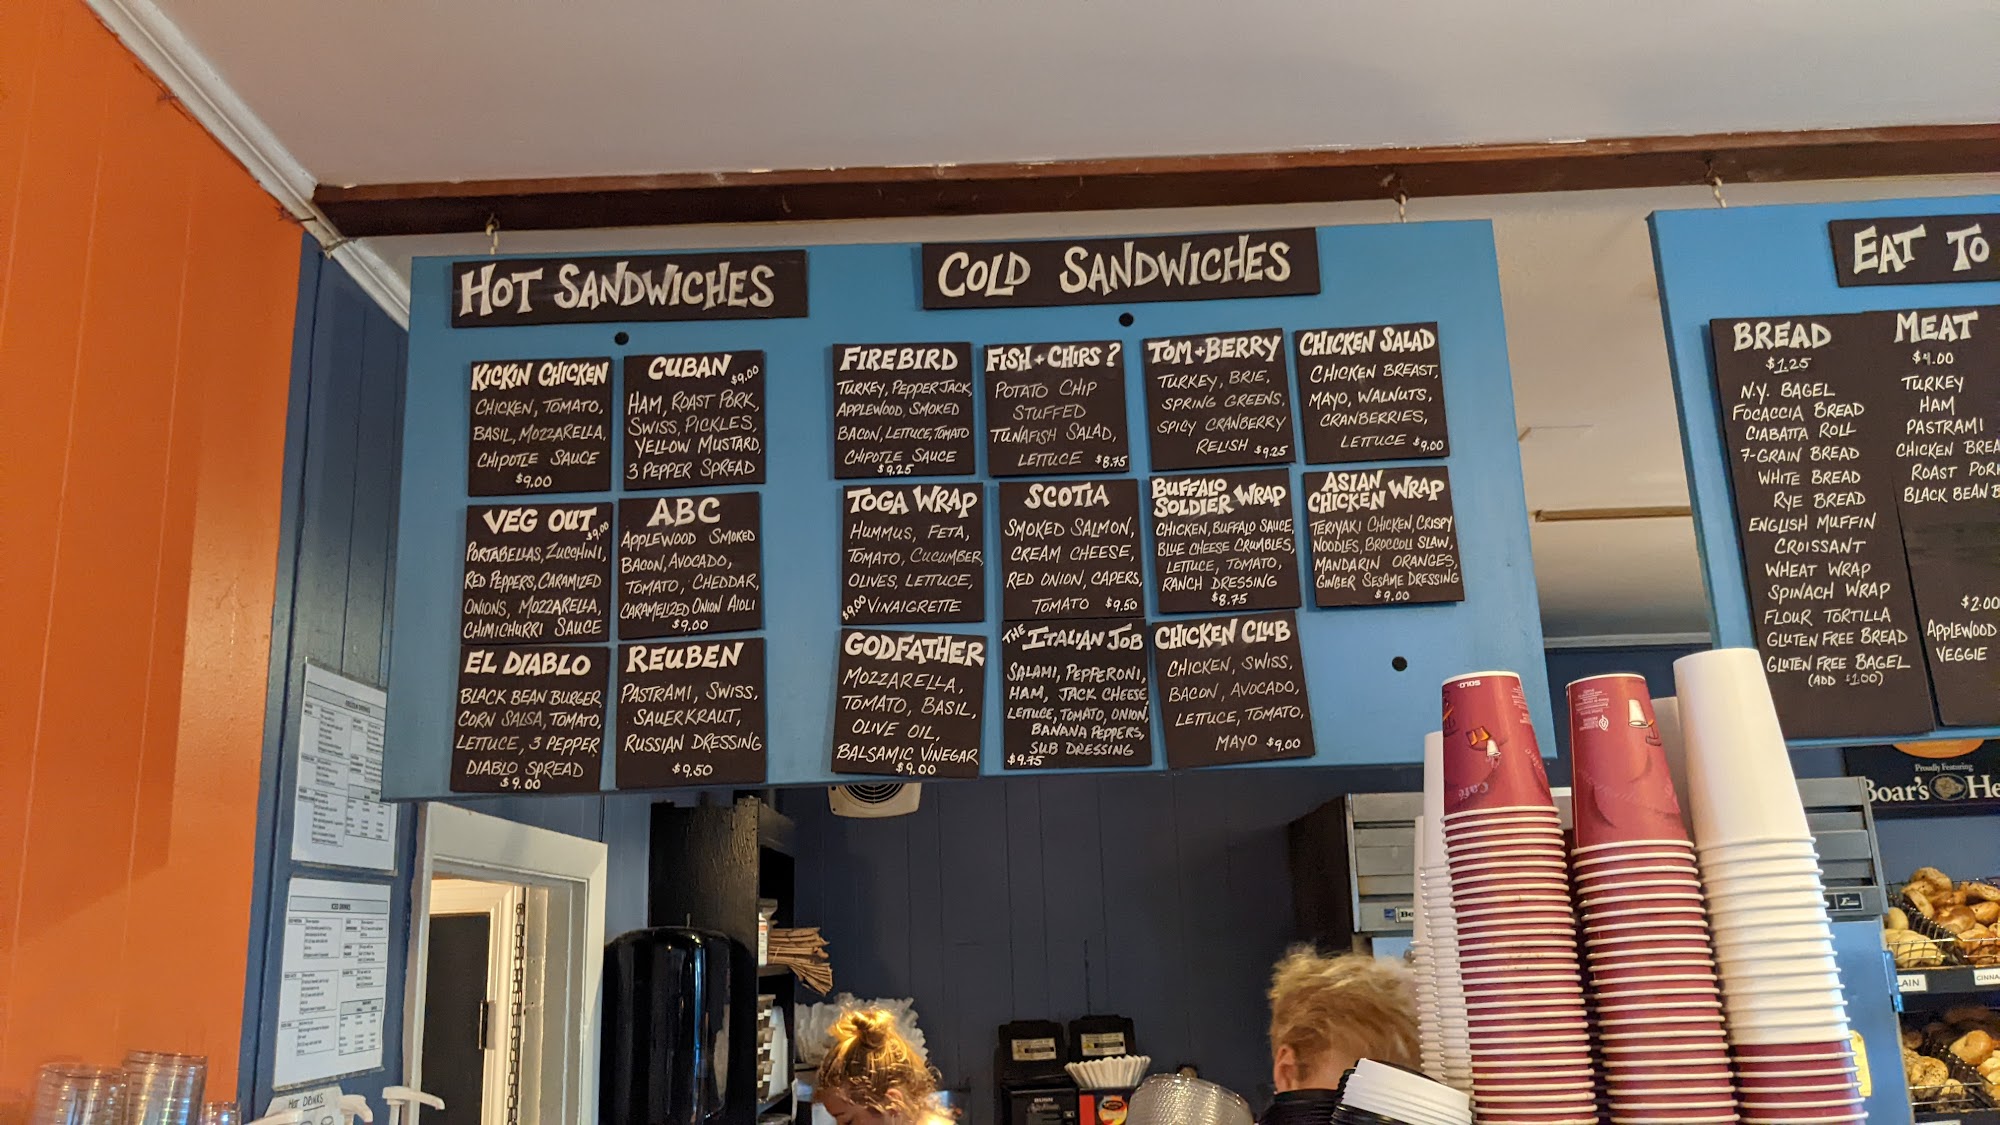 HOT SANDWICHES
KICKIN CHICKEN
CHICKEN, TOMATO,
BASIL, MOZZARELLA,
CHIPOTLE SAUCE
$9.00
CUBAN
$9.00
HAM, ROAST PORK,
SWISS, PICKLES,
YELLOW MUSTARD,
3 PEPPER SPREAD
VEG OUT
$9.00
PORTABELLAS, ZUCCHINI,
RED PEPPERS, CARAMIZED
ONIONS, MOZZARELLA,
CHIMICHURRI SAUCE
ABC
APPLEWOOD SMOKED
BACON, AVOCADO,
TOMATO, CHEDDAR,
CARAMELIZED ONION AIOLI
$9.00
EL DIABLO
BLACK BEAN BURGER,
CORN SALSA, TOMATO,
LETTUCE, 3 PEPPER
DIABLO SPREAD
$9.00
REUBEN
PASTRAMI, SWISS,
SAUERKRAUT,
RUSSIAN DRESSING
$9.50
COLD SANDWICHES
FIREBIRD
TURKEY, PEPPER JACK,
APPLEWOOD, SMOKED
BACON, LETTUCE, TOMATO
CHIPOTLE SAUCE
$9.25
FISH + CHIPS?
POTATO CHIP
STUFFED
TUNAFISH SALAD,
LETTUCE $8.75
TOM + BERRY
TURKEY, BRIE,
SPRING GREENS,
SPICY CRANBERRY
RELISH $9.25
CHICKEN SALAD
CHICKEN BREAST,
MAYO, WALNUTS,
CRANBERRIES,
LETTUCE $9.00
TOGA WRAP
HUMMUS, FETA,
TOMATO, CUCUMBER,
OLIVES, LETTUCE,
$9.00 VINAIGRETTE
SCOTIA
SMOKED SALMON,
CREAM CHEESE,
RED ONION, CAPERS,
TOMATO $9.50
BUFFALO
SOLDIER WRAP
CHICKEN, BUFFALO SAUCE,
BLUE CHEESE CRUMBLES,
LETTUCE, TOMATO,
RANCH DRESSING
$8.75
ASIAN
CHICKEN WRAP
TERIYAKI CHICKEN, CRISPY
NOODLES, BROCCOLI SLAW,
MANDARIN ORANGES,
GINGER SESAME DRESSING
$9.00
GODFATHER
MOZZARELLA,
TOMATO, BASIL,
OLIVE OIL,
BALSAMIC VINEGAR
$9.00
THE ITALIAN JOB
SALAMI, PEPPERONI,
HAM, JACK CHEESE
LETTUCE, TOMATO, ONION,
BANANA PEPPERS,
SUB DRESSING
$9.75
CHICKEN CLUB
CHICKEN, SWISS,
BACON, AVOCADO,
LETTUCE, TOMATO,
MAYO $9.00
EAT TO
BREAD
$1.25
N.Y. BAGEL
FOCACCIA BREAD
CIABATTA ROLL
7-GRAIN BREAD
WHITE BREAD
RYE BREAD
ENGLISH MUFFIN
CROISSANT
WHEAT WRAP
SPINACH WRAP
FLOUR TORTILLA
GLUTEN FREE BREAD
GLUTEN FREE BAGEL
(ADD $1.00)
MEAT
$4.00
TURKEY
HAM
PASTRAMI
CHICKEN BREA
ROAST PORK
BLACK BEAN B
$2.00
APPLEWOOD
VEGGIE
Proudly Featuring
Boar's He
LAIN
CINNA
SOLO
Café
ICED DRINKS
HOT DRINKS